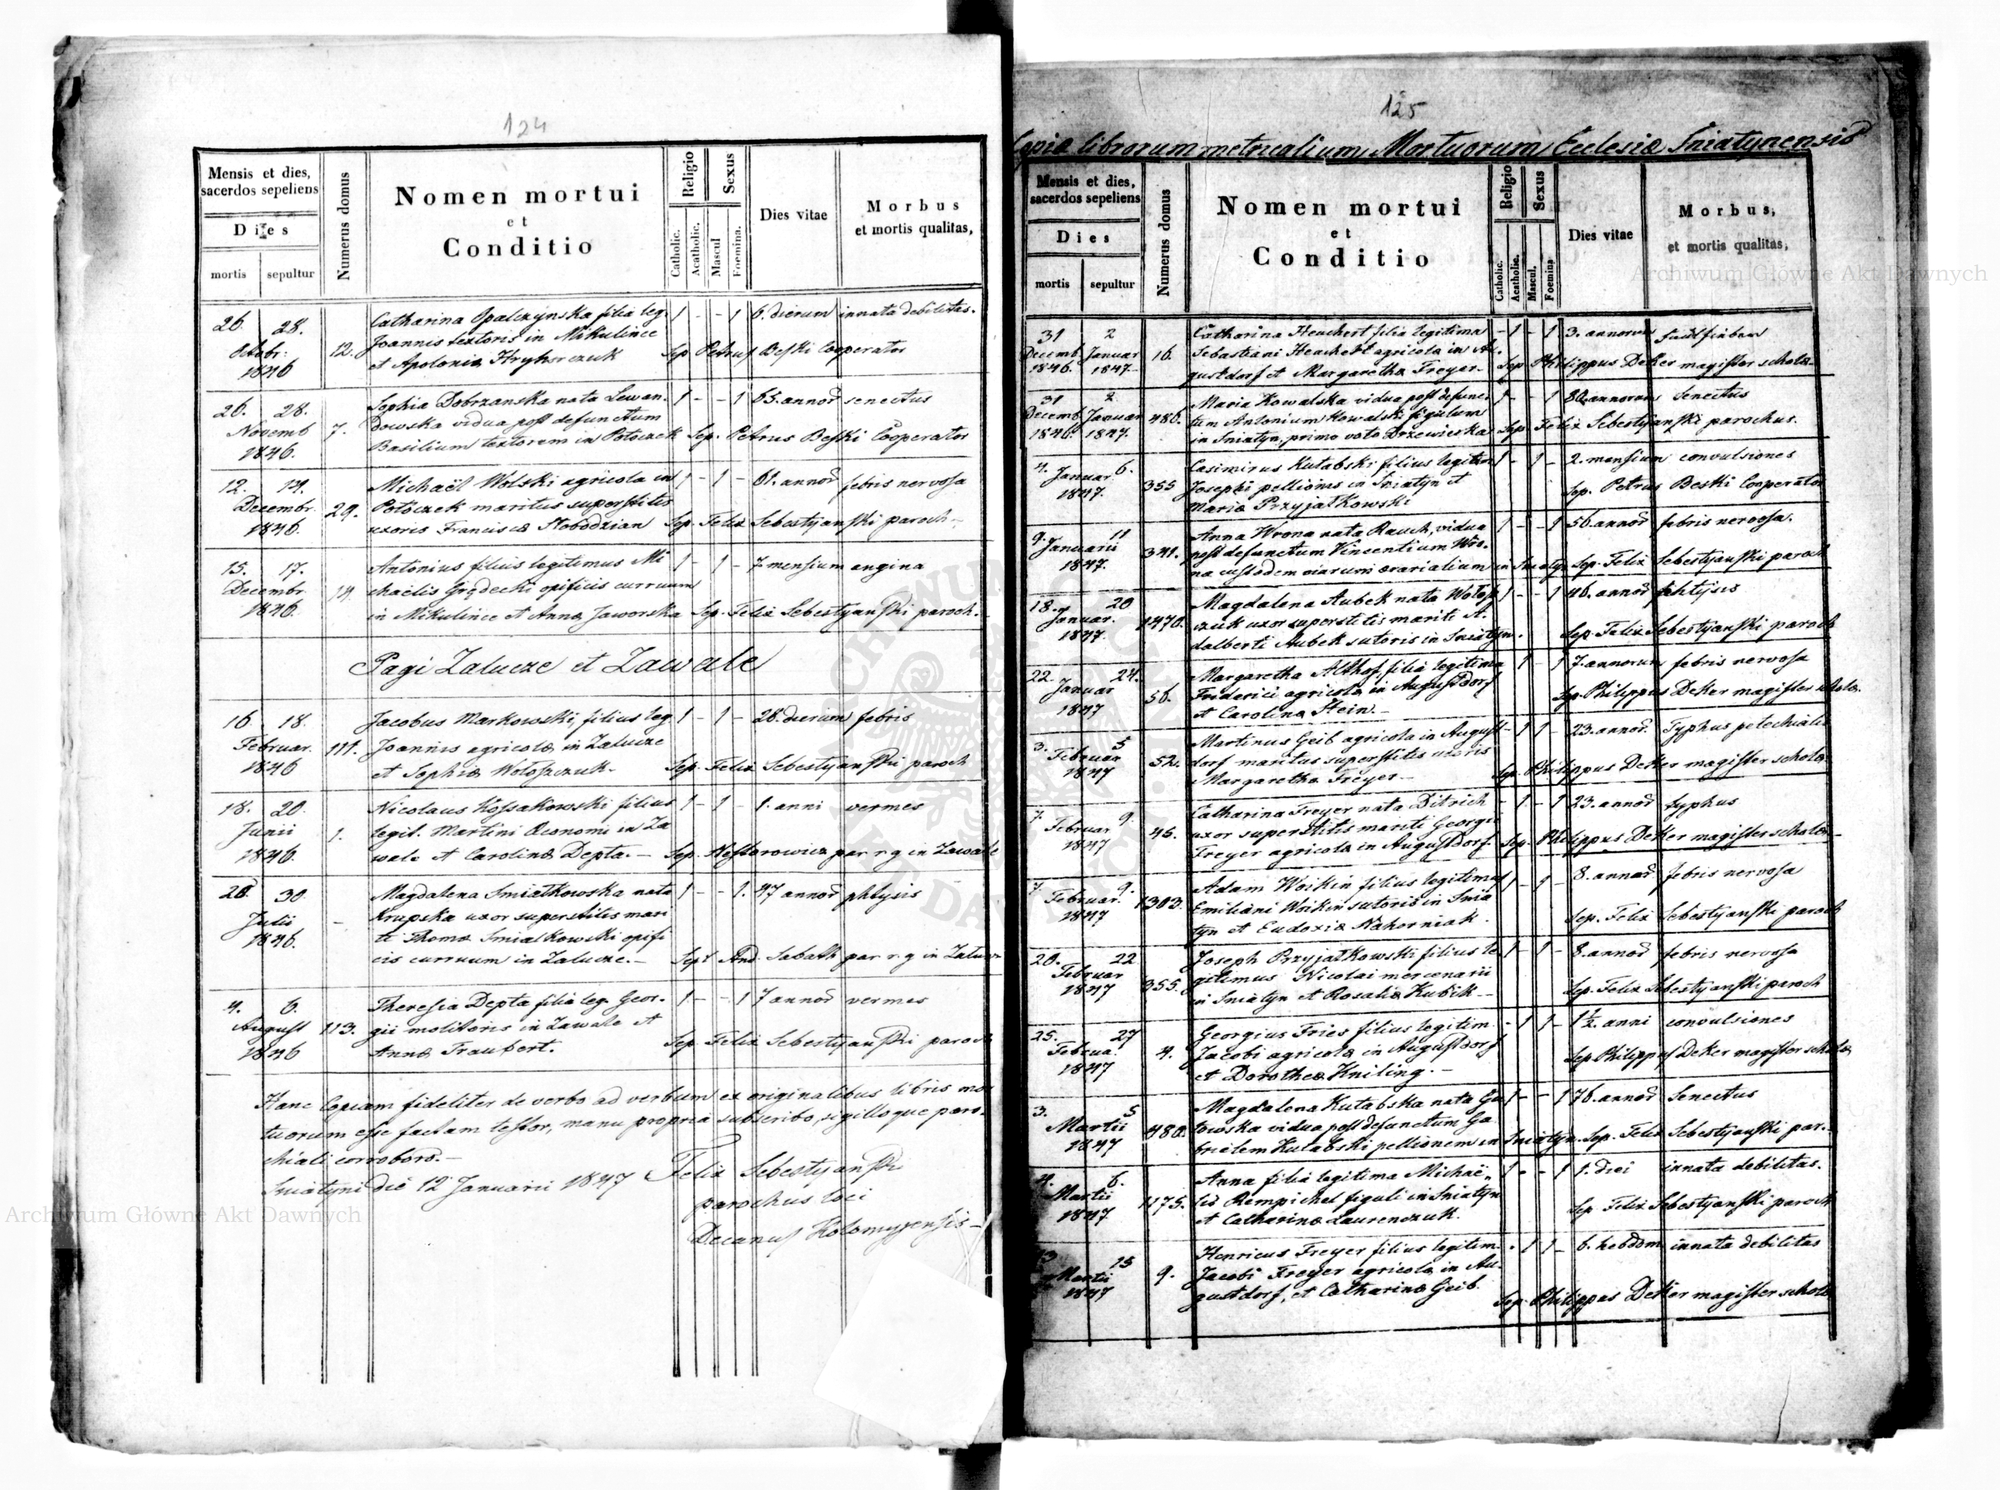 124
Mensis et dies,
sacerdos sepeliens
Dies
mortis
sepultur
Numerus domus
Nomen mortui
et
Conditio
Religio
Catholic.
Acatholic.
Sexus
Mascul
Foemina.
Dies vitae
Morbus
et mortis qualitas,
26. 28. Catharina Opalczynska filia leg. 1 - - 1 6. dierum innata debilitas.
Octobr: 12. Joannis textoris in Mikulince
1846 et Apolonia Hryhorczuk Sep Petrus Beski Cooperator
26. 28. Sophia Dobrzanska nata Lewan- 1 - - 1 65. annor senectus
Novemb 7. dowska vidua post defunctum
1846. Basilium textorem in Potoczek Sep. Petrus Beski Cooperator
12. 14. Michaël Wolski agricola in 1 - 1 - 61. annor febris nervosa
Decembr. 29. Potoczek maritus superstitis
1846. uxoris Francisca Slobodzian Sep. Felix Sebestyanski paroch.-
15. 17. Antonius filius legitimus Mi 1 - 1 - 7 mensium angina
Decembr. 14. chaelis Grodecki opificis curruum
1846 in Mikulince et Anna Jaworska Sep. Felix Sebestyanski paroch.
Pagi Zalucze et Zawale
16. 18. Jacobus Markowski, filius leg 1 - 1 - 28. dierum febris
Februar. 111. Joannis agricola in Zalucze
1846 et Sophia Wotoszczuk- Sep. Felix Sebestyanski paroch
18. 20. Nicolaus Kossakowski filius 1 - 1 - 1. anni vermes
Junii 1. legit. Martini Œconomi in Za
1846. wale et Carolina Depta.- Sep. Nestorowicz par r g in Zawale
28 30. Magdalena Smiatkowska nata 1 - - 1. 47 annor phtysis
Julii - Krupska uxor superstitis mari
1846. ti Thoma Smialkowski opifi
cis curruum in Zalucze.- Sept And. Sabath par r. g in Zalucze
4. 6. Theresia Depta filia leg. Geor- 1 - - 1 7 annor vermes
August 113. gii molitoris in Zawale et
1846 Anna Traubert. Sep Felix Sebestyanski paroch
Hanc Copiam fideliter de verbo ad verbum ex originalibus libris mor
tuorum esse factam testor, manu propria subscribo, sigilloque paro-
chiali corroboro.-
Sniatyni die 12 Januarii 1847 Felix Sebestyanski
parochus loci
Decanus Kolomyensis-
125
Copia librorum metricalium Mortuorum Ecclesiæ Sniatynensis
Mensis et dies,
sacerdos sepeliens
Dies
mortis
sepultur
Numerus domus
Nomen mortui
et
Conditio
Religio
Catholic.
Acatholic.
Sexus
Mascul.
Foemina
Dies vitae
Morbus,
et mortis qualitas,
31 2 Catharina Heuchert filia legitima - 1 - 1 3. annorum Faulfieber
Decemb. Januar 16. Sebastiani Heuchert agricola in Au-
1846. 1847. gustdorf et Margaretha Freyer- Sep. Philippus Deker magister schola-
31 2 Maria Kowalska vidua post defunc 1 - - 1 80 annorum Senectus
Decemb. Januar 486. tum Antonium Kowalski figulum
1846. 1847. in Sniatyn, primo voto Drzewiecka Sep. Felix Sebestyanski parochus.
4. Januar 6. Casimirus Kutabski filius legitim 1 - 1 - 2. mensium convulsiones
1847. 355 Josephi pellionis in Sniatyn et
Maria Przyjatkowski Sep. Petrus Beski Cooperator
9. Januarii 11 Anna Wrona nata Rauch, vidua 1 - - 1 56. annor febris nervosa.
1847. 341. post defunctum Vincentium Wro-
na custodem viarum ærarialium in Sniatyn Sep. Felix Sebestyanski paroch
18. 20 Magdalena Aubek nata Wotosz 1 - - 1 46. annor phtysis
Januar. 1470. czuk uxor superstitis mariti A.
1847. dalberti Aubek sutoris in Sniatyn. Sep. Felix Sebestyanski paroch
22. 24. Margaretha Althof filia legitima - 1 - 1 7. annorum febris nervosa
Januar 56. Friderici agricola in Augustdorf
1847 et Carolina Stein.- Sep. Philippus Deker magister schola.
3. 5 Martinus Geib agricola in August- - 1 1 - 23. annor. Typhus petechialis
Februar 52. dorf maritus superstitis uxoris
1847 Margaretha Freyer- Sep. Philippus Deker magister schola.
7. 9. Catharina Freyer nata Ditrich - 1 - 1 23. annor typhus
Februar 45. uxor superstitis mariti Georgii
1847 Freyer agricola in Augustdorf. Sep. Philippus Deker magister schola-
7. 9. Adam Woikin filius legitimus 1 - 1 - 8. annor febris nervosa
Februar. 1303. Emiliani Woikin sutoris in Snia
1847 tyn et Eudoxia Nahorniak. Sep. Felix Sebestyanski paroch
20. 22 Joseph Przyjatkowski filius le 1 - 1 - 8. annor febris nervosa
Februar 355. gitimus Nicolai mercenarii
1847 in Sniatyn et Rosalia Kubik- Sep. Felix Sebestyanski paroch
25. 27 Georgius Fries filius legitim. - 1 1 - 1½. anni convulsiones
Februa. 4. Jacobi agricola in Augustdorf
1847 et Dorothea Kniling.- Sep. Philippus Deker magister schola
3. 5 Magdalena Kutabska nata Ga 1 - - 1 76. annor Senectus
Martii 480. towska vidua post defunctum Ga
1847 brielem Kutabski pellionem in Sniatyn. Sep. Felix Sebestyanski par.
4. 6. Anna filia legitima Michaë- 1 - - 1 1. diei innata debilitas.
Martii 1175. lis Rempichel figuli in Sniatyn
1847 et Catharina Laurenczuk. Sep. Felix Sebestyanski paroch
13 15 Henricus Freyer filius legitim. - 1 1 - 6. hebdom innata debilitas
Martii 9. Jacobi Freyer agricola in Au-
1847 gustdorf, et Catharina Geib. Sep. Philippus Deker magister schola
Archiwum Główne Akt Dawnych
Archiwum Główne Akt Dawnych